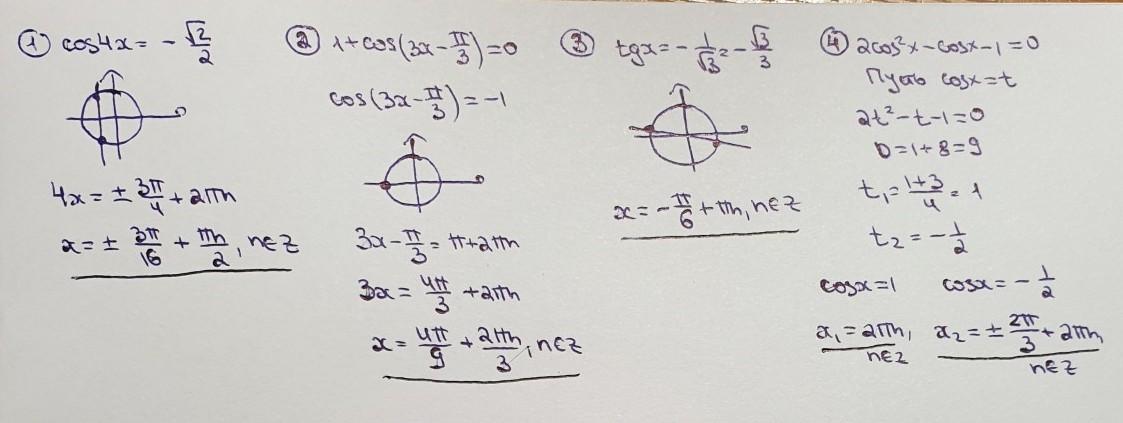 ① cos4x = - √2/2
4x = ± 3π/4 + 2πn
x = ± 3π/16 + πn/2, n∈Z
② 1+cos(3x - π/3)=0
cos(3x - π/3) = -1
3x - π/3 = π+2πn
3x = 4π/3 + 2πn
x = 4π/9 + 2πn/3, n∈Z
③ tgx = - 1/√3 = - √3/3
x = - π/6 + πn, n∈Z
④ 2cos²x - cosx - 1 = 0
Пусть cosx = t
2t² - t - 1 = 0
D = 1 + 8 = 9
t₁ = (1+3)/4 = 1
t₂ = - 1/2
cosx = 1 cosx = - 1/2
x₁ = 2πn, x₂ = ± 2π/3 + 2πn,
n∈Z n∈Z